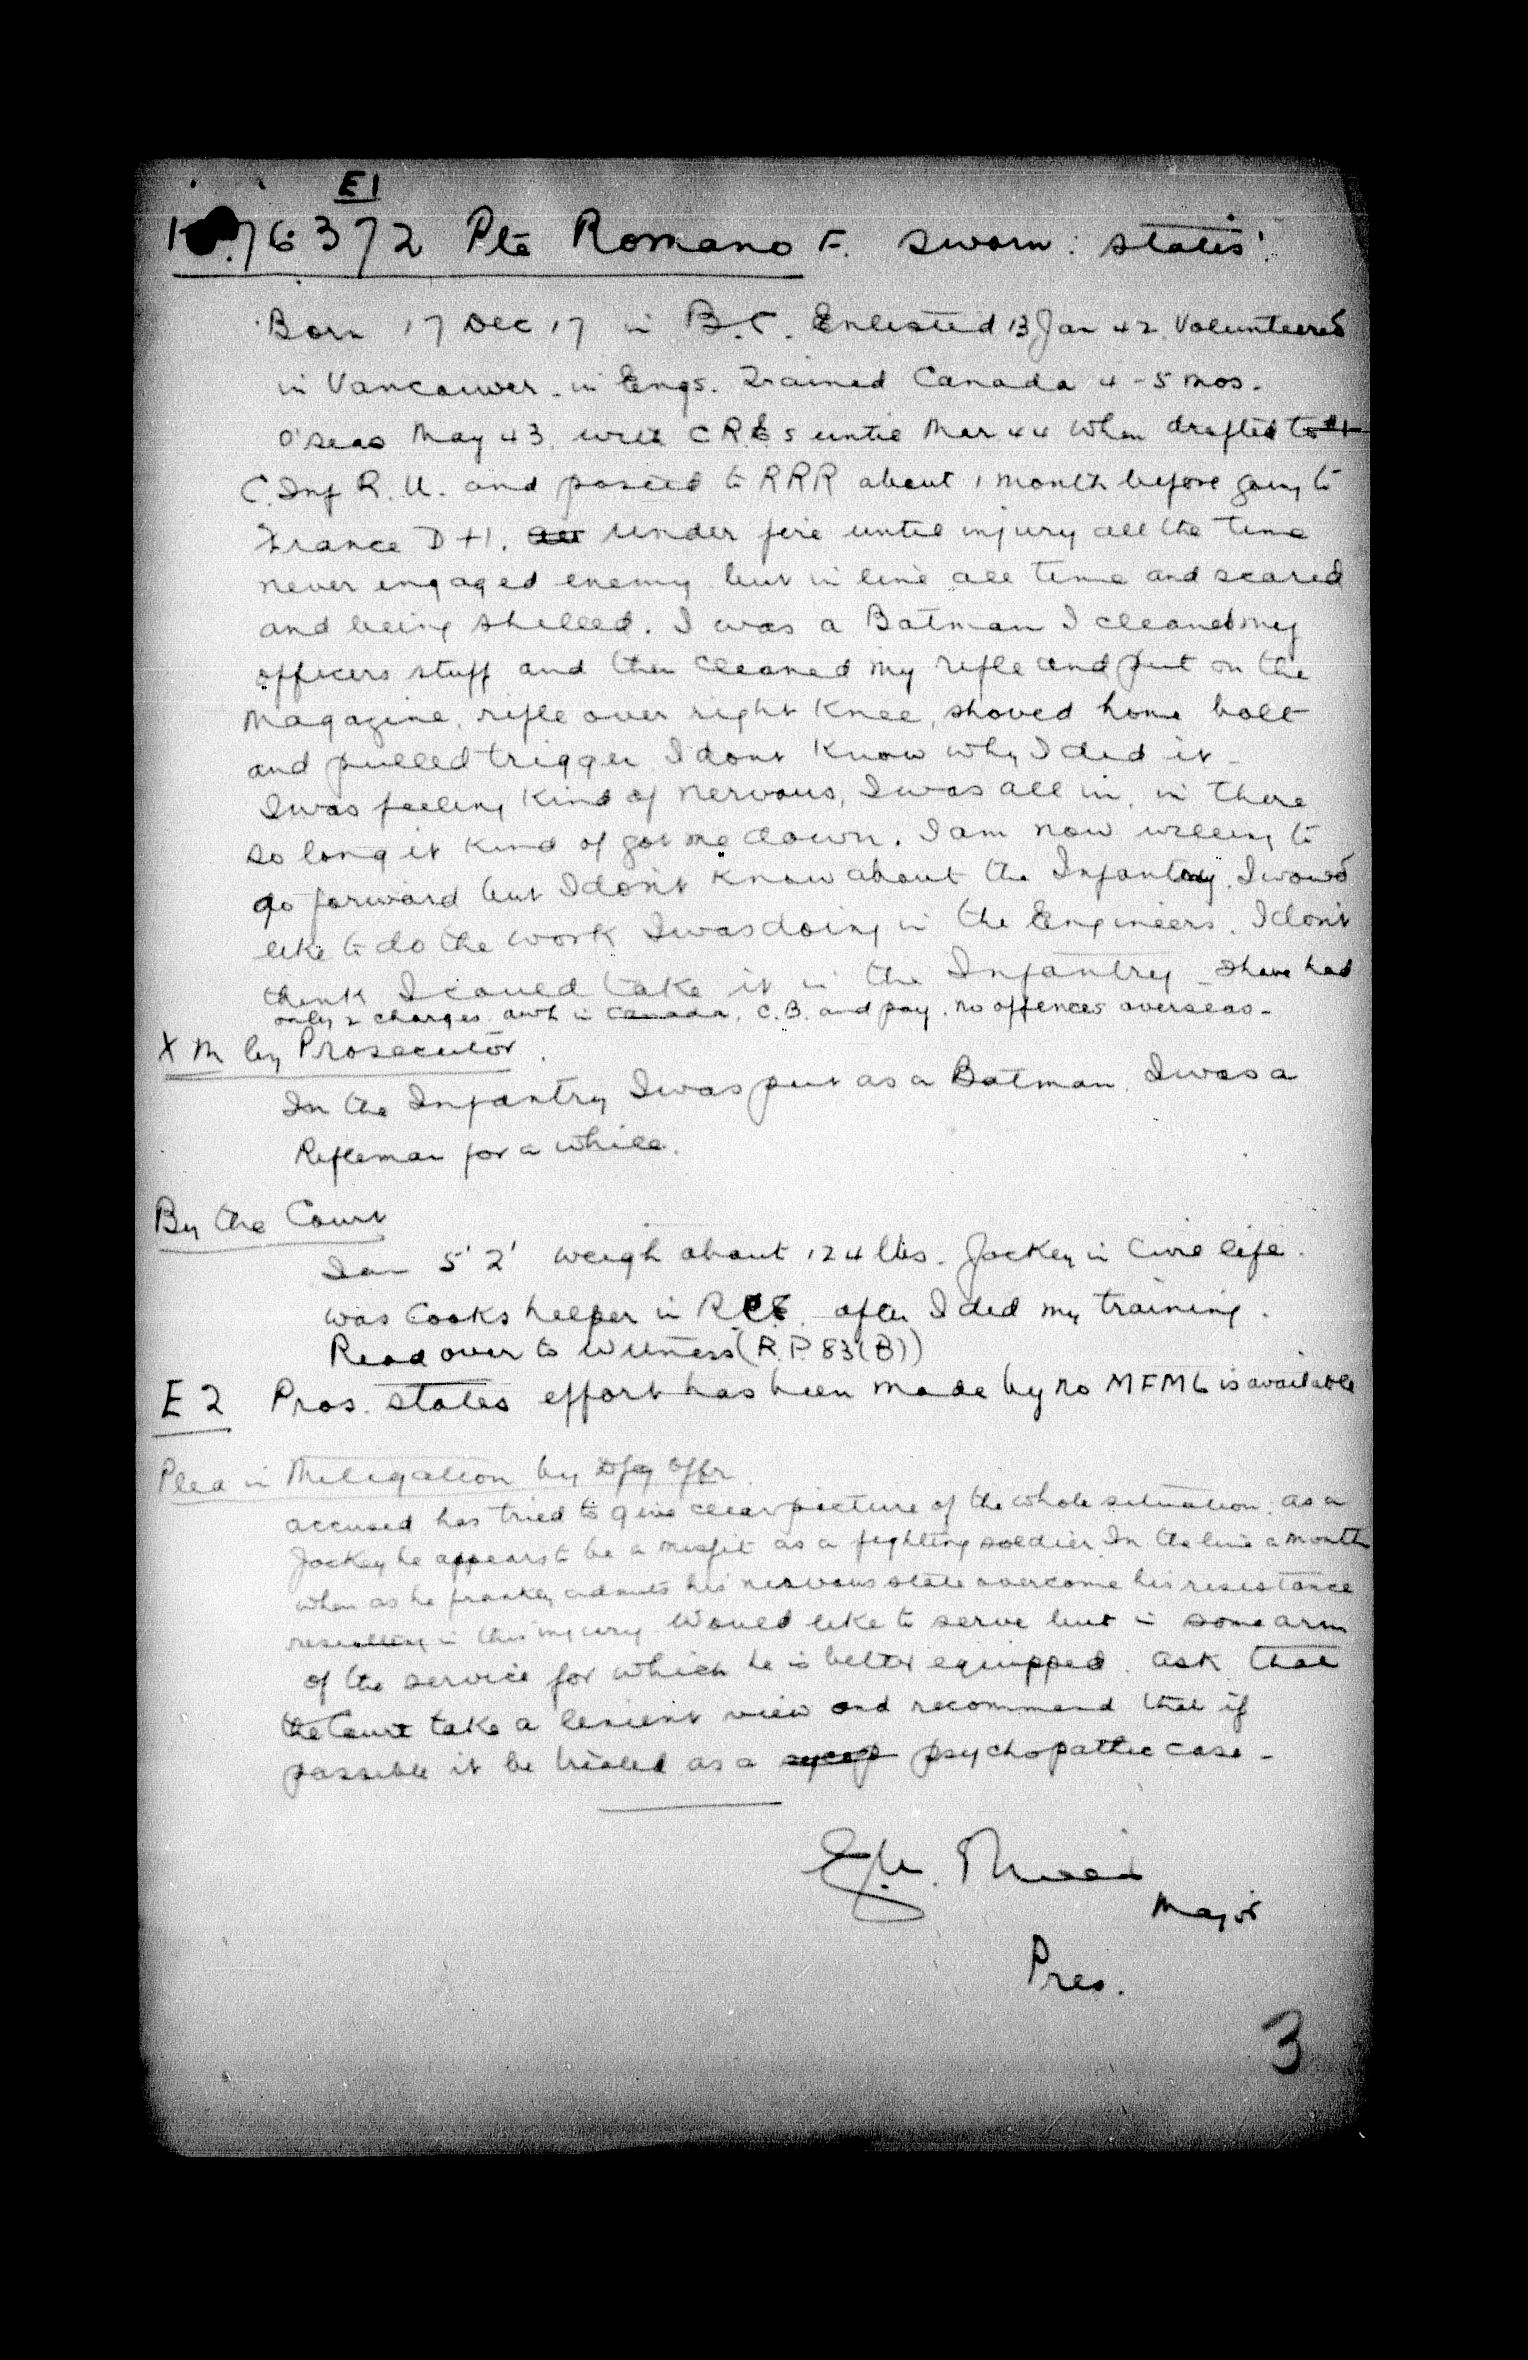 E1
76372 Pte Romano F. sworn: states:
Born 17 Dec 17 in B.C. Enlisted 13 Jan 42. Volunteered
in Vancouver. in Engs. Trained Canada 4-5 mos.
O'seas May 43. with CREs until Mar 44 when drafted to
C. Inf R.U. and posted to RRR about 1 month before going to
France D+1. Under fire until injury all the time
never engaged enemy but in line all time and scared
and being shelled. I was a Batman I cleaned my
officers stuff and then cleaned my rifle and put on the
Magazine, rifle over right knee, shoved home bolt
and pulled trigger. I dont know why I did it.
I was feeling kind of nervous, I was all in, in there
so long it kind of got me down. I am now willing to
go forward but I don't know about the Infantry. I would
like to do the work I was doing in the Engineers. I don't
think I could take it in the Infantry. I have had
only 2 charges awl in Canada, C.B. and pay. no offences overseas.
X M by Prosecutor.
In the Infantry I was put as a Batman. I was a
Rifleman for a while.
By the Court
I am 5' 2' weigh about 124 lbs. Jockey in Civil life.
was Cooks helper in RCE. after I did my training.
Read over to Witness (R.P. 83(B))
E 2 Pros. states effort has been made by no MFM6 is available
Plea in Mitigation by Dfg Offr
accused has tried to give clear picture of the whole situation. as a
Jockey he appears to be a misfit as a fighting soldier. In the line a month
when as he frankly admits his nervous state overcome his resistance
resulting in this injury. Would like to serve but in some arm
of the service for which he is better equipped. ask that
the Court take a lenient view and recommend that if
possible it be treated as a psychopathic case.
Major
Pres.
3